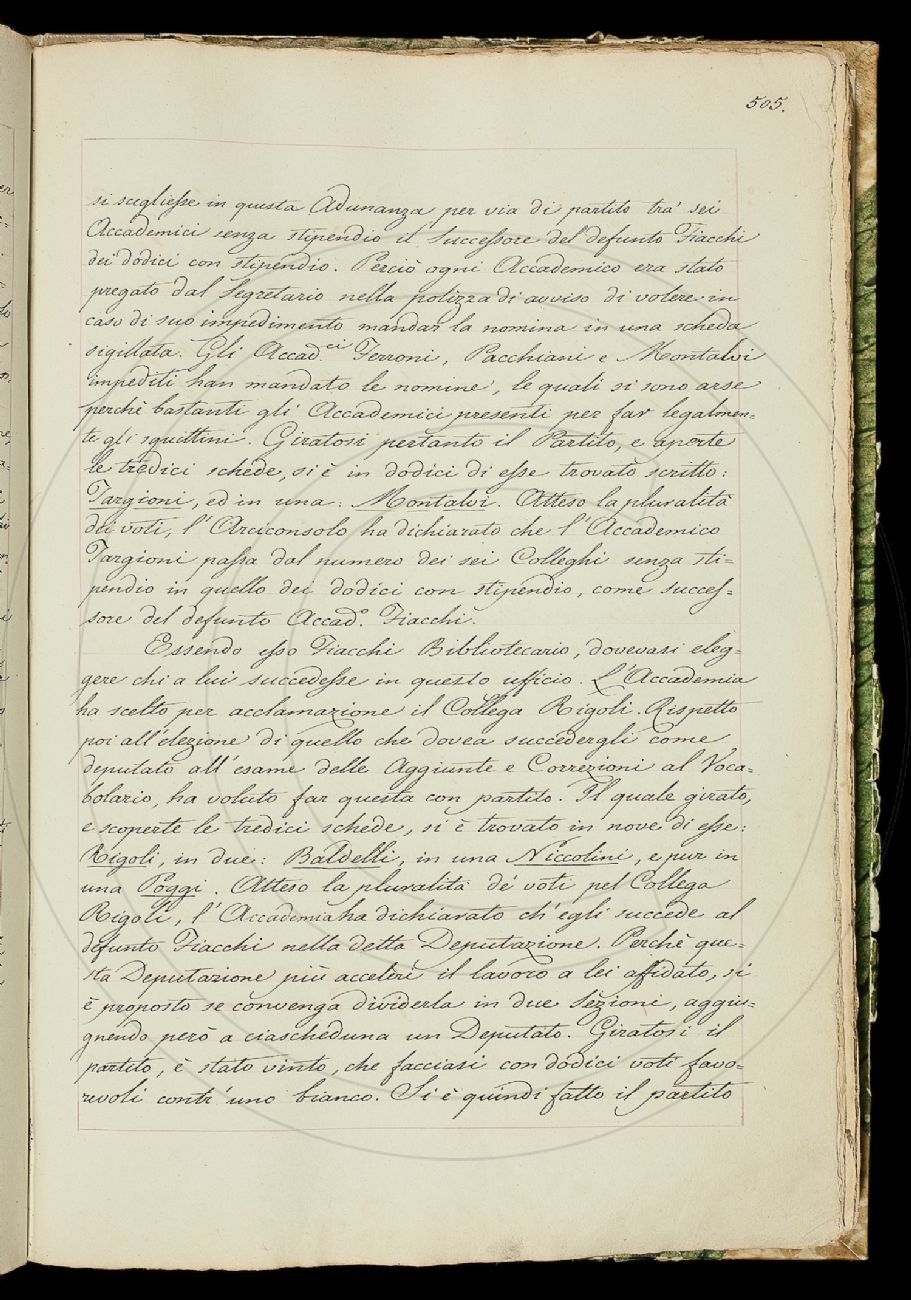 505.
si scegliesse in questa Adunanza per via di partito trà sei
Accademici senza stipendio il Successore del defunto Fiacchi
dei dodici con stipendio. Perciò ogni Accademico era stato
pregato dal Segretario nella polizza di avviso di volere in
caso di suo impedimento mandar la nomina in una scheda
sigillata. Gli Accad.ci Ferroni, Pacchiani e Montalvi
impediti han mandato le nomine, le quali si sono arse
perchè bastanti gli Accademici presenti per far legalmen=
te gli squittini. Giratosi pertanto il Partito, e aperte
le tredici schede, si è in dodici di esse trovato scritto:
Targioni, ed in una: Montalvi. Atteso la pluralità
dei voti, l'Arciconsolo ha dichiarato che l'Accademico
Targioni passa dal numero dei sei Colleghi senza sti=
pendio in quello dei dodici con stipendio, come succes=
sore del defunto Accad.o Fiacchi.
Essendo esso Fiacchi Bibliotecario, dovevasi eleg=
gere chi a lui succedesse in questo uffizio. L'Accademia
ha scelto per acclamazione il Collega Rigoli. Rispetto
poi all'elezione di quello che dovea succedergli come
deputato all'esame delle Aggiunte e Correzioni al Voca=
bolario, ha voluto far questa con partito. Il quale girato,
e scoperte le tredici schede, si è trovato in nove di esse:
Rigoli, in due: Baldelli, in una Niccolini, e pur in
una Poggi. Atteso la pluralità de' voti pel Collega
Rigoli, l'Accademia ha dichiarato ch'egli succede al
defunto Fiacchi nella detta Deputazione. Perchè que=
sta Deputazione più acceleri il lavoro a lei affidato, si
è proposto se convenga dividerla in due Sezioni, aggiu=
gnendo però a ciascheduna un Deputato. Giratosi il
partito, è stato vinto, che facciasi con dodici voti favo=
revoli contr'uno bianco. Si è quindi fatto il partito